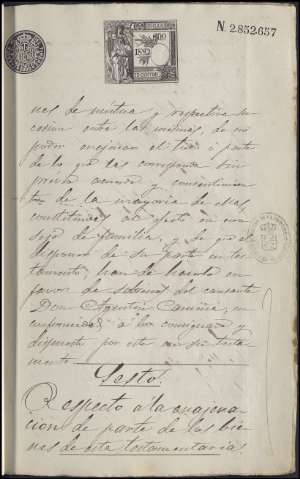 N. 2.852.657
1880
nes de mutua y respectiva su-
cesion entre las mismas, de no
poder enajenar el todo ó parte
de lo que las corresponda sin
previo acuerdo y consentimien-
to de la mayoria de ellas,
constituidas al efecto en con-
sejo de familia, y de que el
disponer de su parte en tes-
tamento, han de hacerlo en
favor de sobrinos del causante
Don Agustin en
conformidad á lo consignado y
dispuesto por este en su testa-
mento.
Sesto!
Respecto á la enagena-
cion de parte de los bie-
nes de esta testamentaria